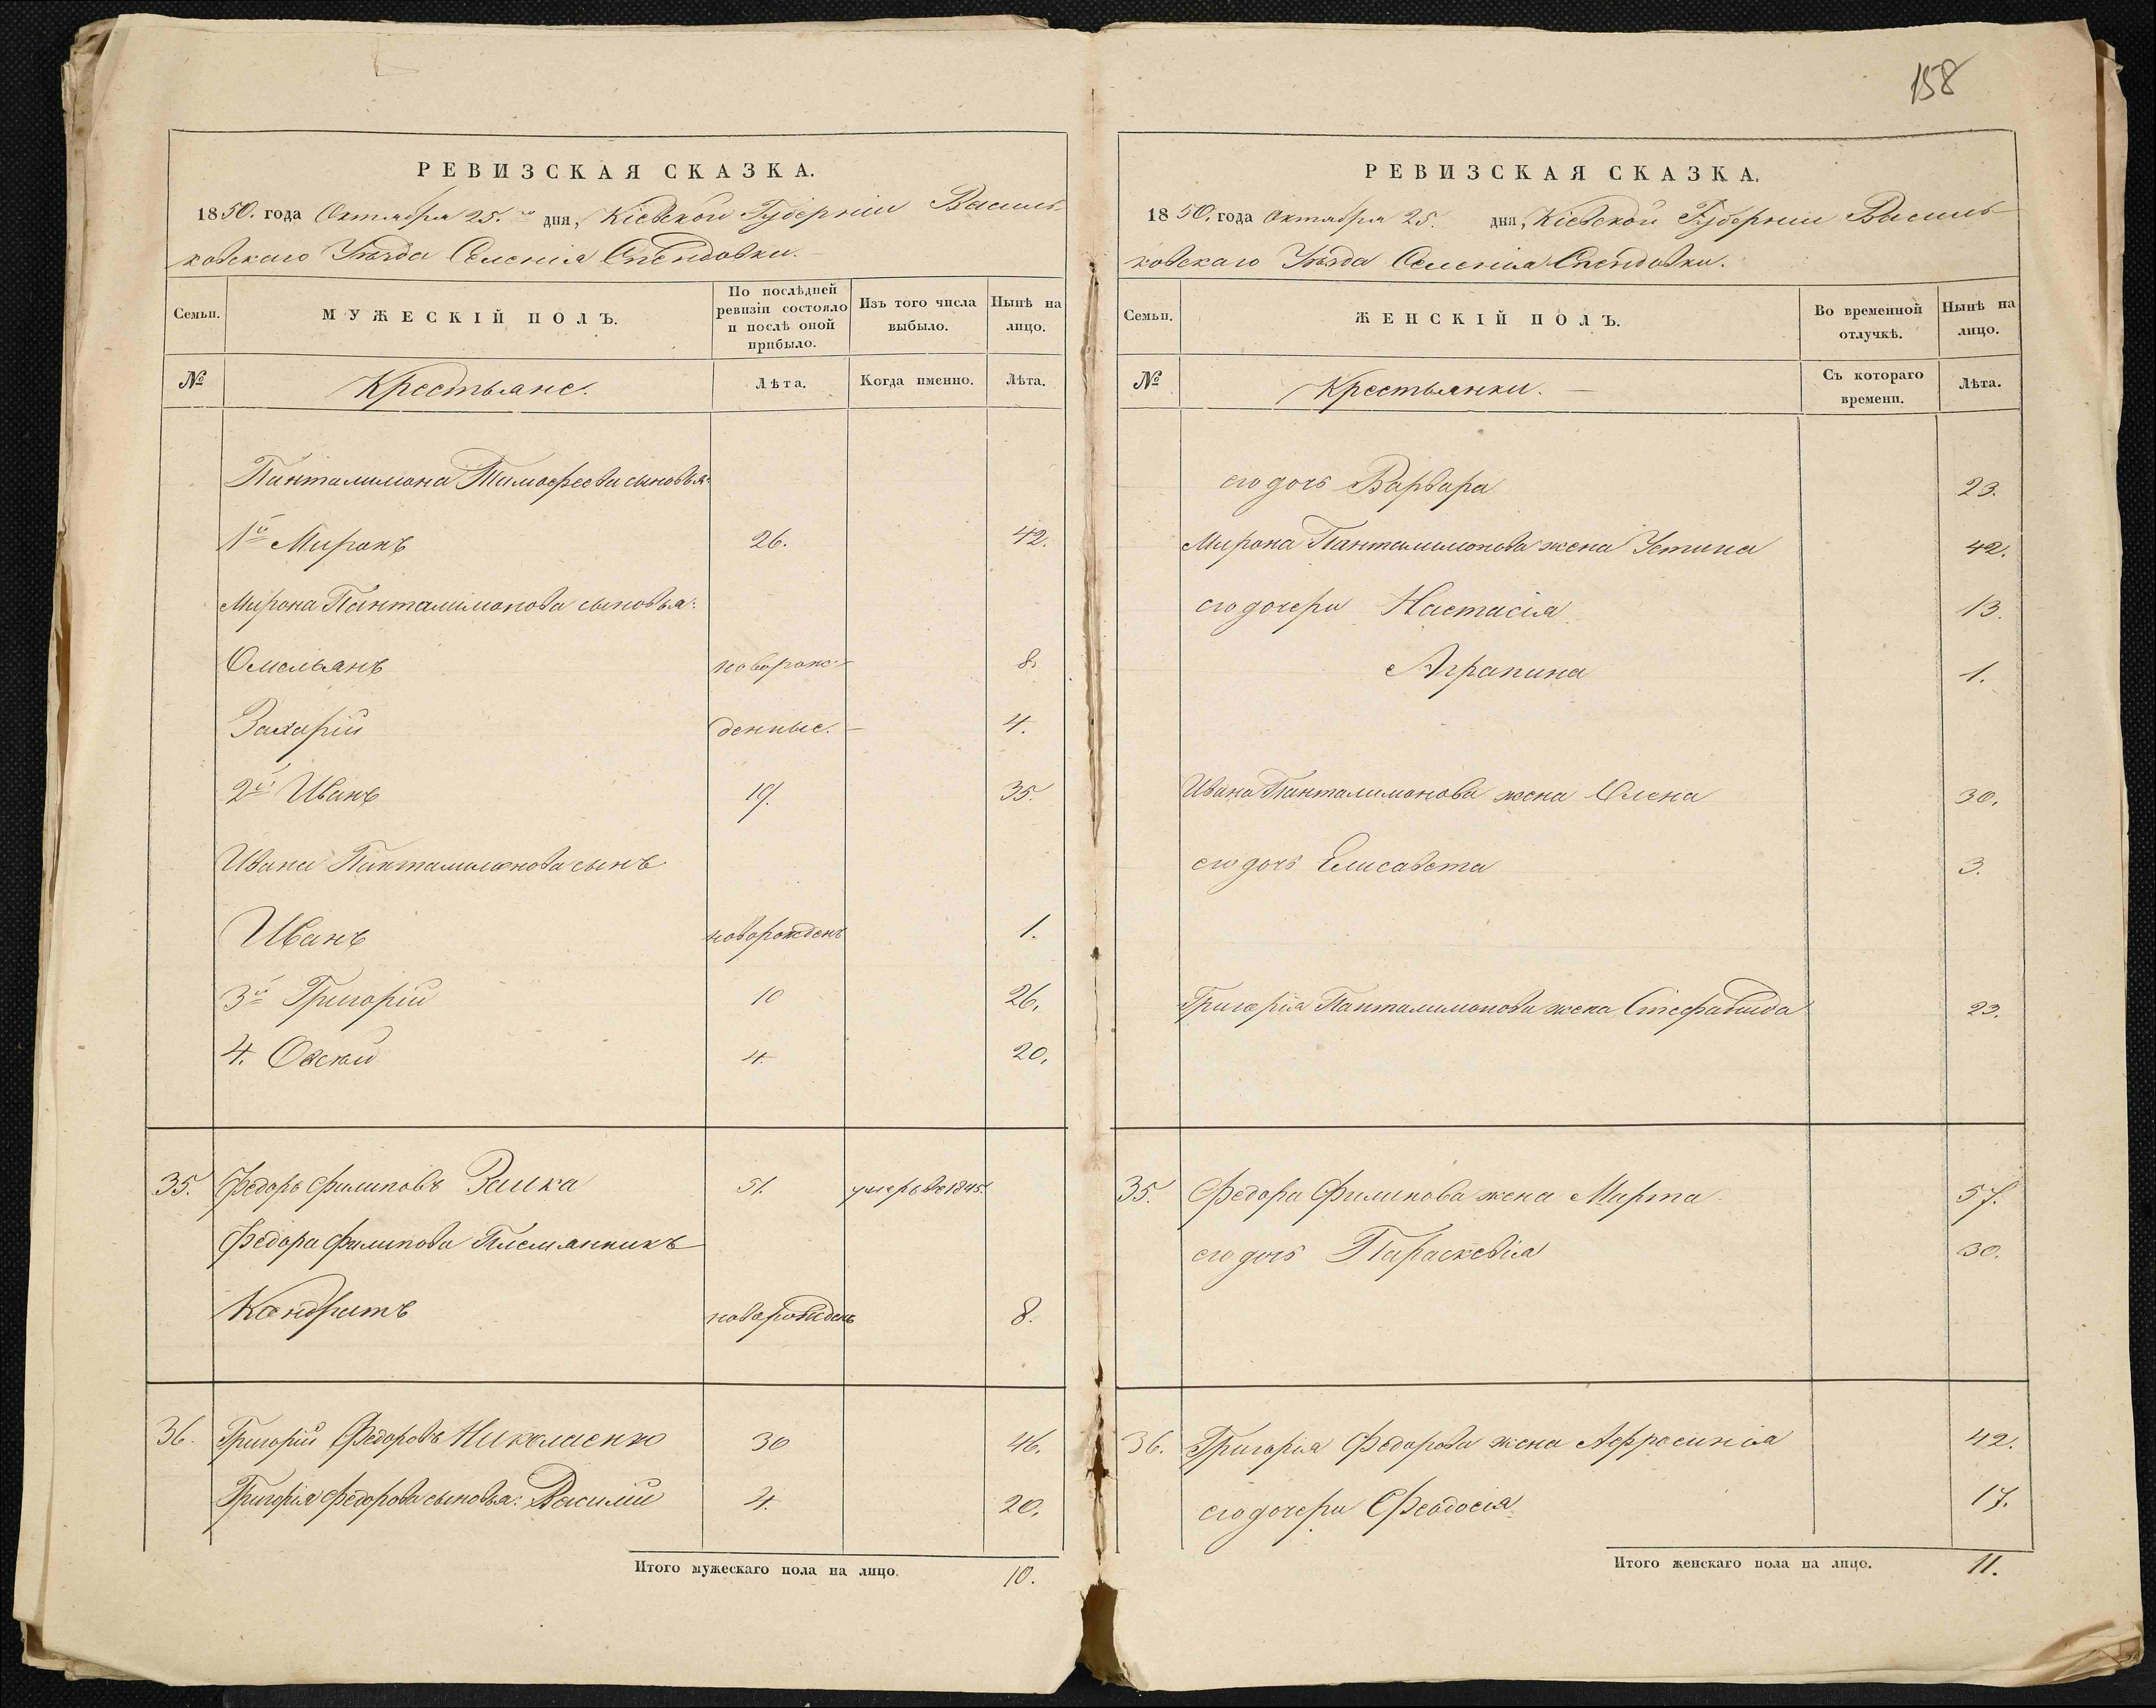 158
РЕВИЗСКАЯ СКАЗКА.
1850. года Октября 25. го дня, Кіевской Губерніи Василь-
ковскаго Уѣзда Селенія Спендовки.
Семьи.
МУЖЕСКІЙ ПОЛЪ.
По послѣдней ревизіи состояло и послѣ оной прибыло.
Изъ того числа выбыло.
Нынѣ на лицо.
№ Крестьяне. Лѣта. Когда именно. Лѣта.
Панталимона Тимофеева сыновья:
1й Миронъ 26. 42.
Мирона Панталимонова сыновья:
Омельянъ новорож- 8.
Захарій денные. 4.
2й Иванъ 19. 35.
Ивана Панталимонова сынъ
Иванъ новорожденъ 1.
3й Григорій 10 26.
4. 4. 20.
35. Федоръ Филиповъ 51. умеръ въ 1845.
Федора Филипова Племянникъ
Кондратъ новорожденъ 8.
36. Григорій Федоровъ Николаенко 30 46.
Григорія Федорова сыновья: Василій 4. 20.
Итого мужескаго пола на лицо. 10.
РЕВИЗСКАЯ СКАЗКА.
1850. года Октября 25. дня, Кіевской Губерніи Василь-
ковскаго Уѣзда Селенія Спендовки.
Семьи.
ЖЕНСКІЙ ПОЛЪ.
Во временной отлучкѣ.
Нынѣ на лицо.
№ Крестьянки. Съ котораго времени. Лѣта.
его дочь Варвара 23.
Мирона Панталимонова жена Устина 42.
его дочери Настасія 13.
Аграпина 1.
Ивана Панталимонова жена Олена 30.
его дочь Елисавета 3.
Григорія Панталимонова жена Стефанида 23.
35. Федора Филипова жена Марта 57.
его дочь Параскевія 30.
36. Григорія Федорова жена Афросинія 42.
его дочери Феодосія 17.
Итого женскаго пола на лицо. 11.